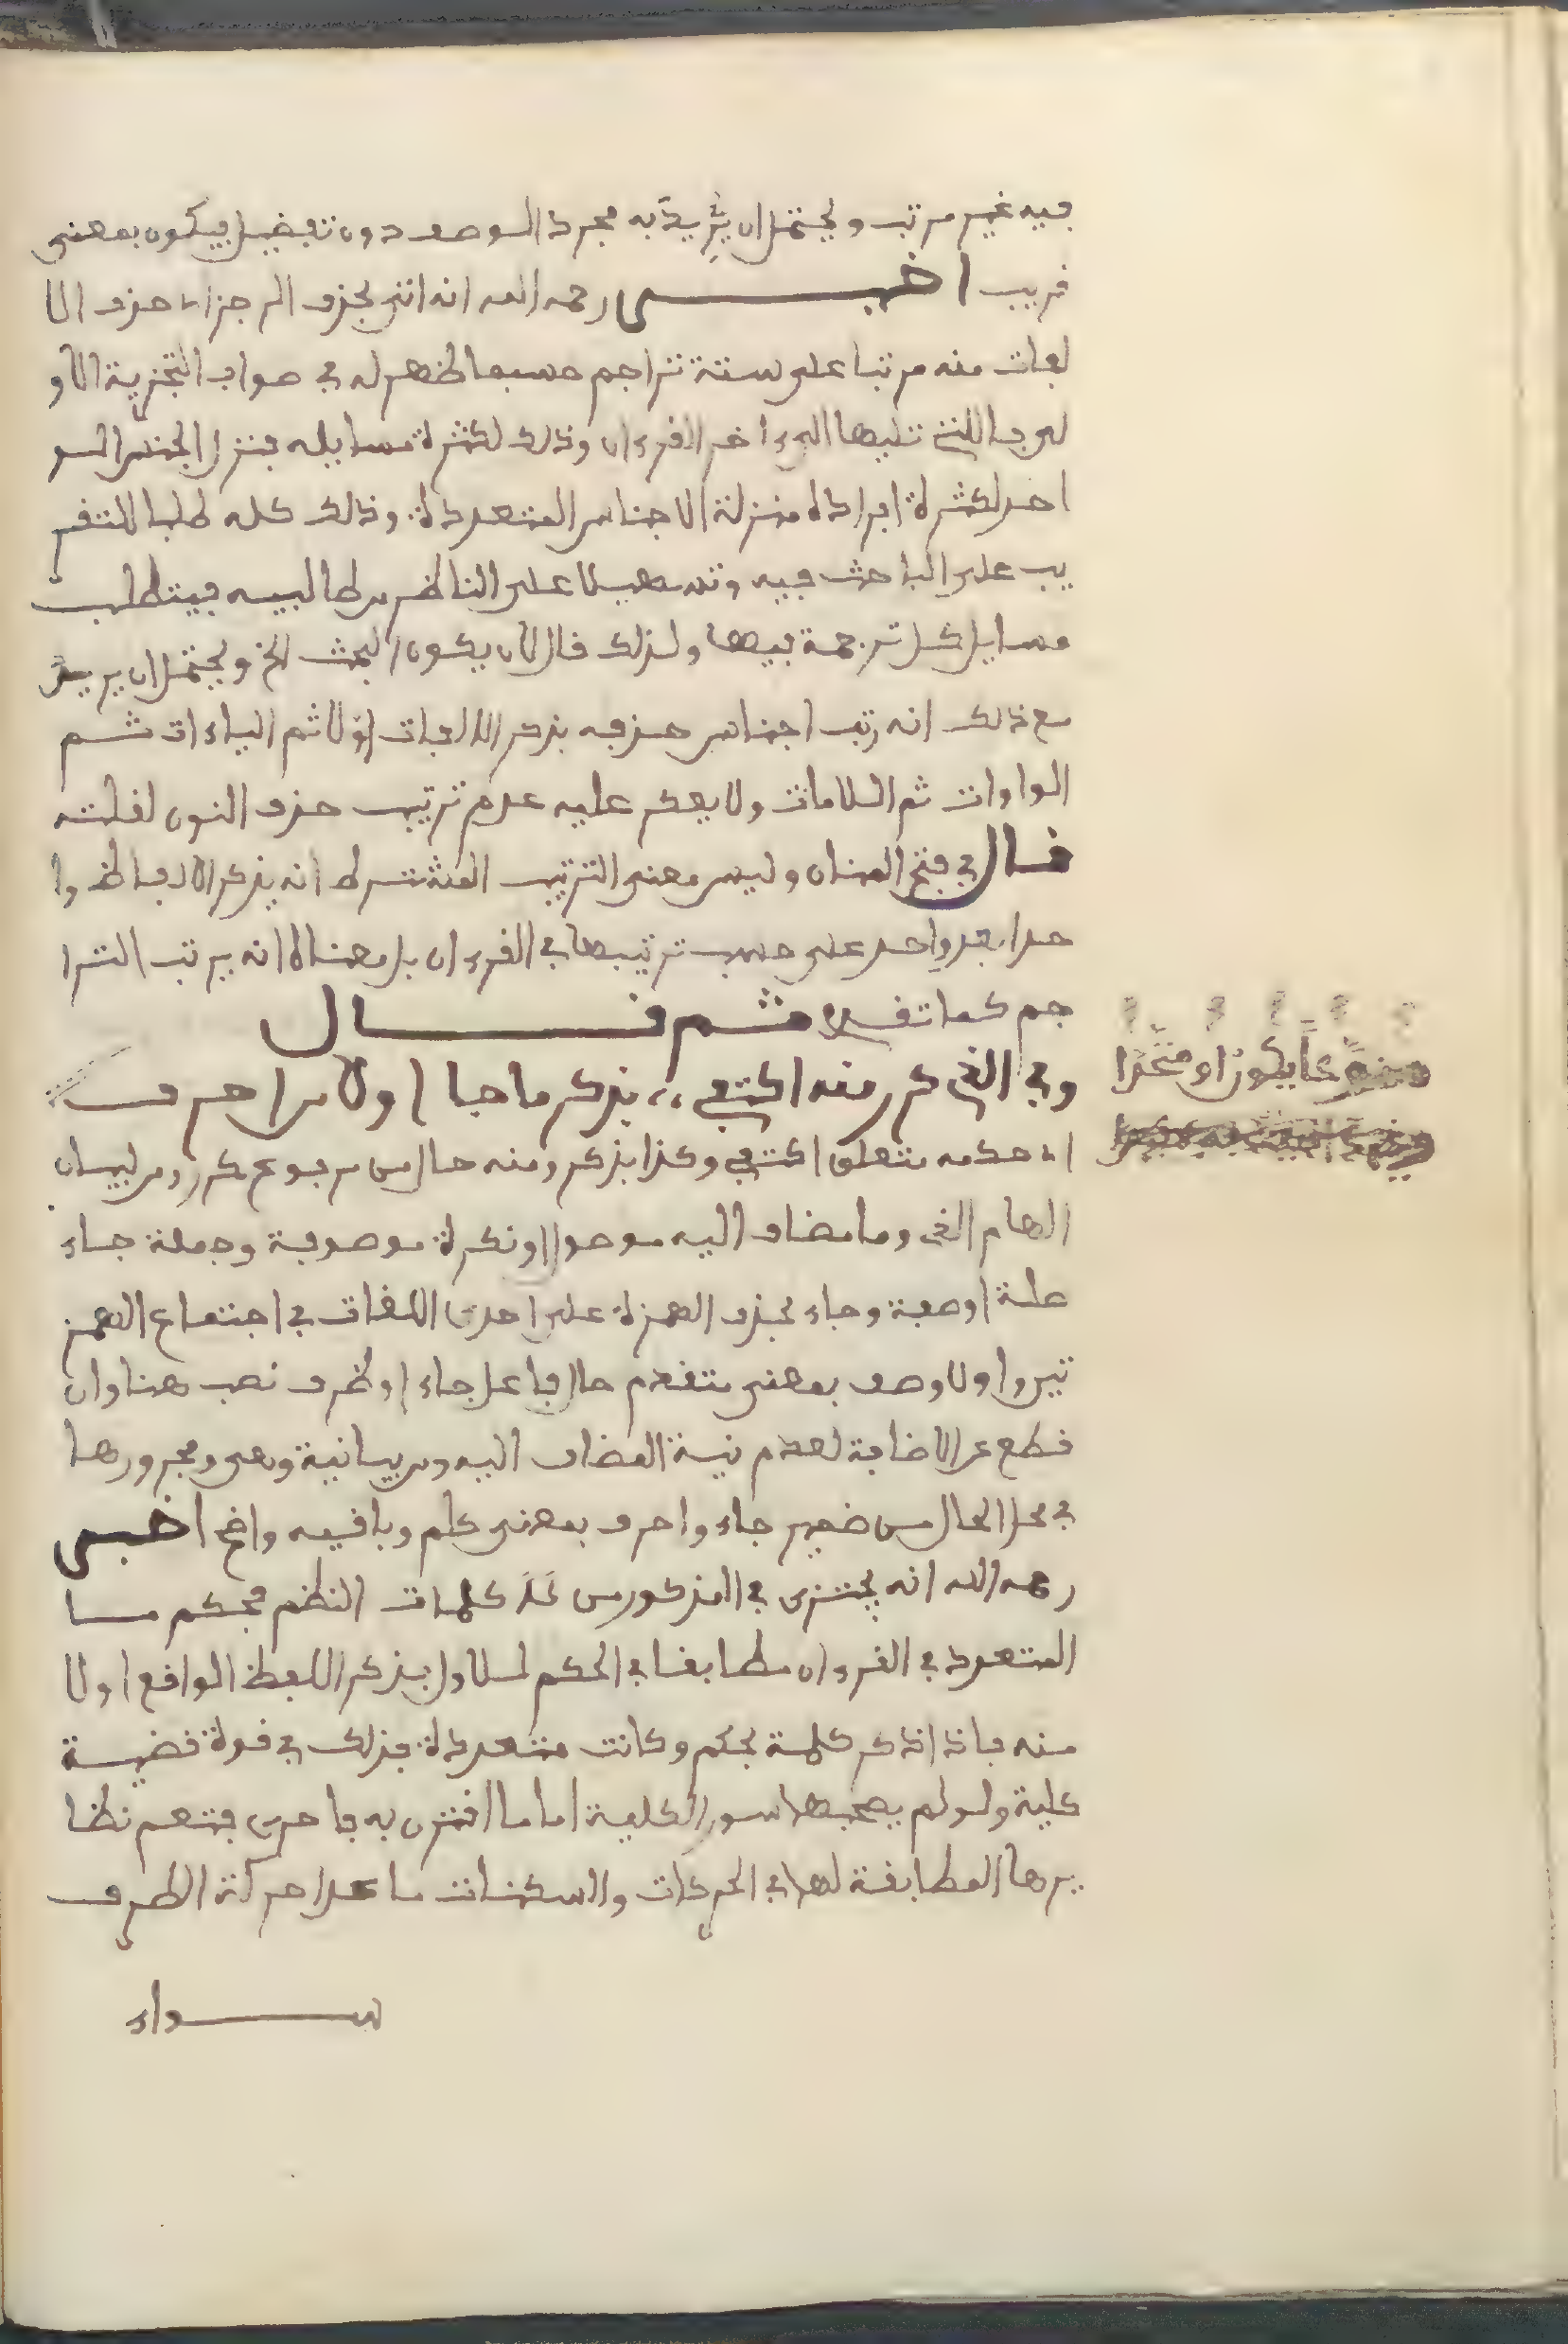 فيه غير مرتب ويحتمل ان يريد به مجرد الوصف دون تفضيل فيكون بمعنى
قريب اخبر رحمه الله انه اتى بحذف الرجز اي حذف الا
لفات منه مرتبا على ستة تراجم حسبما ظهر له في صواب التجزية الاو
لى فاللتي تليها الى ءاخر القرءان وذلك لكثرة مسايله فنزل الجنس الو
احد لكثرة افراده منزلة الاجناس المتعددة وذلك كله طلبا للتقر
يب على الباحث فيه وتسهيلا على الناظر من طالبيه فيتطلب
مسايل كل ترجمة فيها ولذلك قال لان يكون البحث الخ ويحتمل ان يريد
مع ذلك انه رتب اجناس حذفه بذكر الالفات اولا ثم الياءات ثم
الواوات ثم اللامات ولا يعكر عليه عدم ترتيب حذف النون لقلته
قال في فتح المنان وليس معنى الترتيب المشترط انه يذكر الالفاظ وا
حدا بعد واحد على حسب ترتيبها في القرءان بل معناه انه يرتب الترا
جم كما تقدم ثم قال
وفي الذي كرر منه اكتفي ،، بذكر ما جا اولا من احرف
اي حكمه متعلق اكتفي وكذا بذكر ومنه حال من مرفوع كرر ومن لبيان
الهام الذي وما مضاف اليه موصول او نكرة موصوفة وجملة جاء
صلة او صفة وجاء بحذف الهمزة على احدى اللغات في اجتماع الهمز
تين واولا وصف بمعنى متقدم حال فاعل جاء او ظرف نصب هنا وان
قطع عن الاضافة لعدم نية المضاف اليه ومن بيانية وهي ومجرورها
في محل الحال من ضمير جاء واحرف بمعنى كلم وباقيه واضح اخبر
رحمه الله انه يجتزي في المذكور من كلمات النظم بحكم ما
المتعدد في القرءان مطابقا في الحكم للاول بذكر اللفظ الواقع اولا
منه فاذا ذكر كلمة بحكم وكانت متعددة فذلك في قوة قضية
كلية ولو لم يصحبها سور الكلية اما ما اقترن به فاحرى فتعم نظا
يرها المطابقة لها في الحركات والسكنات ما عدا حركة الطرف
سواء